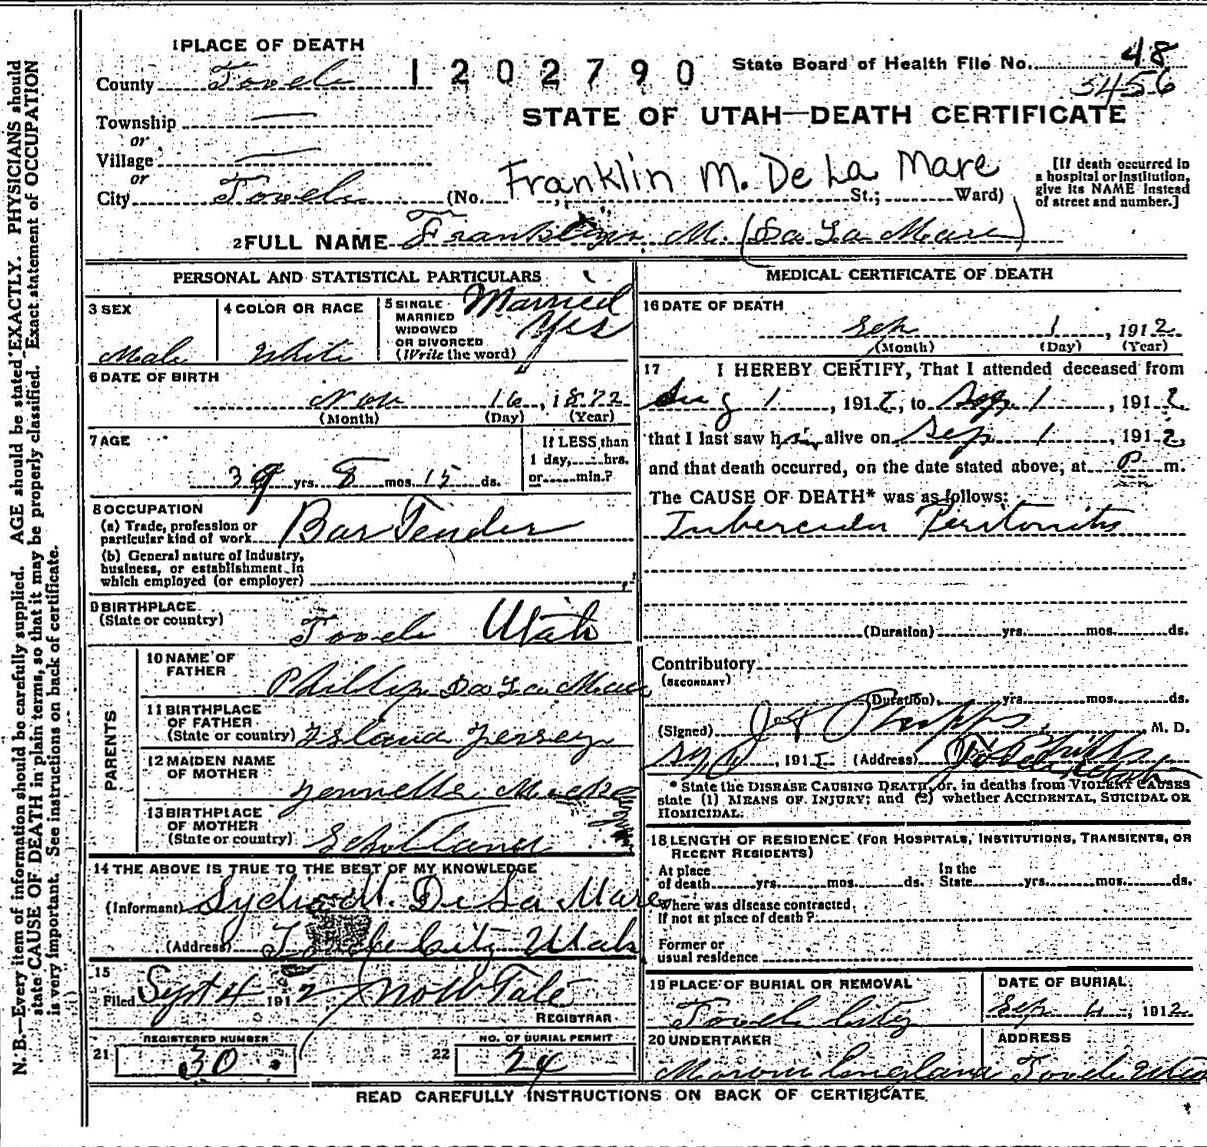 N. B.—Every item of information should be carefully supplied. AGE should be stated EXACTLY. PHYSICIANS should
state CAUSE OF DEATH in plain terms, so that it may be properly classified. Exact statement of OCCUPATION
is very important. See instructions on back of certificate.
1 PLACE OF DEATH
County Tooele
1202790
State Board of Health File No. 48
5456
STATE OF UTAH—DEATH CERTIFICATE
Township —
or
Village —
or
City Tooele (No. St.; Ward)
Franklin M. De La Mare
[If death occurred in
a hospital or institution,
give its NAME instead
of street and number.]
2 FULL NAME M. (Da La Mare)
PERSONAL AND STATISTICAL PARTICULARS
3 SEX
Male
4 COLOR OR RACE
White
5 SINGLE
MARRIED
WIDOWED
OR DIVORCED
(Write the word)
Married
Yes
6 DATE OF BIRTH
Nov 16, 1872
(Month) (Day) (Year)
7 AGE
39 yrs. 8 mos. 15 ds.
If LESS than
1 day, hrs.
or min.?
8 OCCUPATION
(a) Trade, profession or
particular kind of work Bar Tender
(b) General nature of industry,
business, or establishment in
which employed (or employer)
9 BIRTHPLACE
(State or country) Tooele Utah
PARENTS
10 NAME OF
FATHER
Phillip Da La Mare
11 BIRTHPLACE
OF FATHER
(State or country) Island Jersey
12 MAIDEN NAME
OF MOTHER
13 BIRTHPLACE
OF MOTHER
(State or country) Schotland
14 THE ABOVE IS TRUE TO THE BEST OF MY KNOWLEDGE
(Informant) Lydia M. De La Mare
(Address) City Utah
15
Filed Sept 4 1912
REGISTRAR
REGISTERED NUMBER
21 30
NO. OF BURIAL PERMIT
22 24
MEDICAL CERTIFICATE OF DEATH
16 DATE OF DEATH
Sep 1, 1912
(Month) (Day) (Year)
17 I HEREBY CERTIFY, That I attended deceased from
Aug 1, 1912, to Sep 1, 1912
that I last saw him alive on Sep 1, 1912
and that death occurred, on the date stated above, at P m.
The CAUSE OF DEATH* was as follows:
Tubercular Peritonitis
(Duration) yrs. mos. ds.
Contributory
(SECONDARY)
(Duration) yrs. mos. ds.
(Signed) Phipps M. D.
191 (Address)
* State the DISEASE CAUSING DEATH, or, in deaths from VIOLENT CAUSES
state (1) MEANS OF INJURY; and (2) whether ACCIDENTAL, SUICIDAL OR
HOMICIDAL.
18 LENGTH OF RESIDENCE (FOR HOSPITALS, INSTITUTIONS, TRANSIENTS, OR
RECENT RESIDENTS)
At place
of death yrs. mos. ds.
In the
State yrs. mos. ds.
Where was disease contracted,
If not at place of death?
Former or
usual residence
19 PLACE OF BURIAL OR REMOVAL
Tooele City
DATE OF BURIAL
Sep 4, 1912
20 UNDERTAKER
Moroni England
ADDRESS
Tooele Utah
READ CAREFULLY INSTRUCTIONS ON BACK OF CERTIFICATE